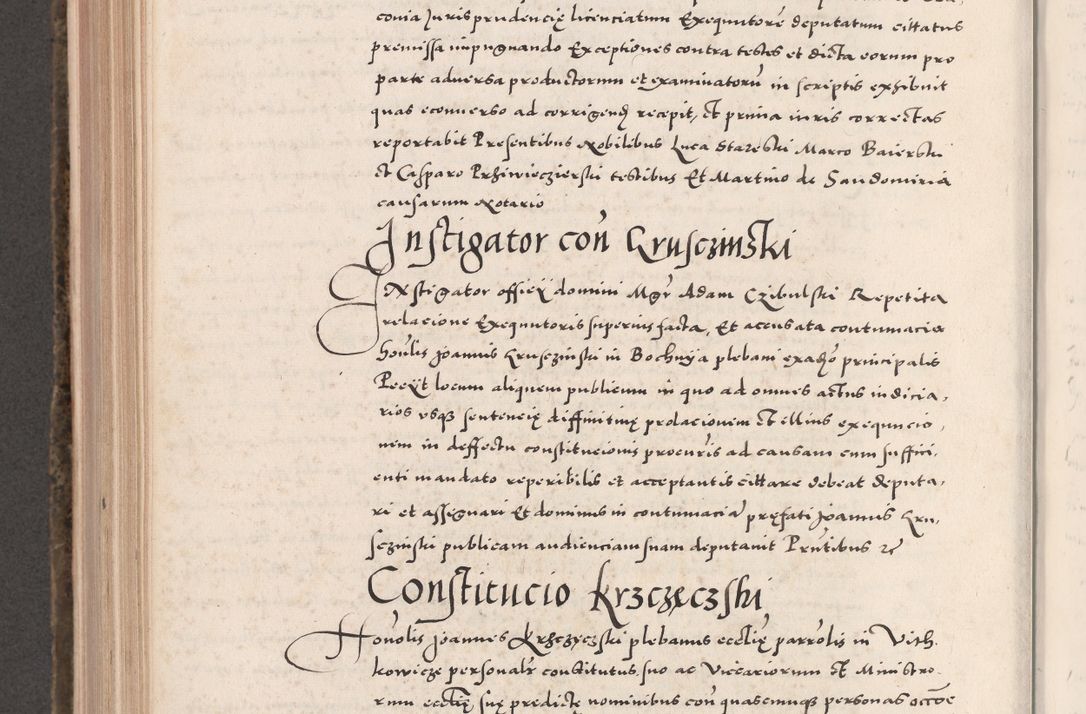 conia Jurisprudencię licenciatum Exequutorē deputatum cittatus
premissa impugnando Exceptiones contra testes et dicta eorum pro
parte adversa productorum et examinatorū in scriptis exhibuit
quas econuerso ad corrigendū recepit, et prima iuris correctas
reportabit Presentibus Nobilibus Luca Starebski Marco Baierski
et Casparo Prziwieczierski testibus Et Martino de Sandomiria
causarum Notario
Instigator coñ Krusczinski
INstigator officii domini Mgr̄ Adam Czibulski Repetita
relacione Exequutoris superius facta, Et accusata contumacia
honłis Joannis Krusczinski in Bochnya plebani principalis
Peeyt locum aliquem publicum in quo ad omnes actus iudicia,
rios vsque sentencię diffinitiuę prolacionem et illius exequucio,
nem in deffectu constitucionis procuris ad causam cum suffici,
enti mandato reperibilis et acceptantis cittare debeat deputa,
ri et assegnari Et dominus in contumaciā pręfati Joannis Kru,
sczinski publicam audienciam suam deputauit Prñtibus ꝛc̄
Constitucio Krzczęczski
Honołis Joannes Krzczyczski plebanus eccłię parrołis in Vith,
kowicze personalr̄ constitutus, suo ac Viccariorum et Ministro,
rum eccłię suę predictę nominibus coñ quascumque personas occōe